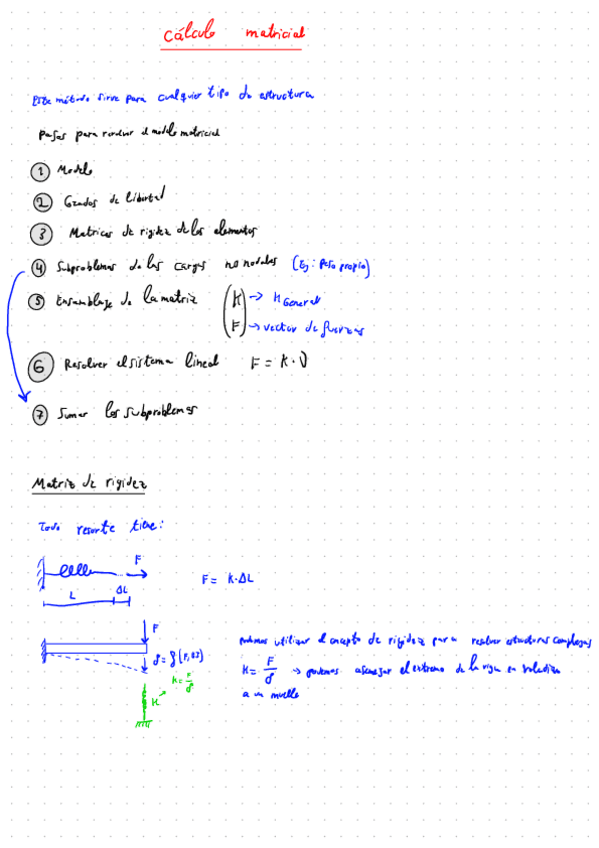 Cálculo matricial
Este método sirve para cualquier tipo de estructura
Pasos para resolver el modelo matricial
1 Modelo
2 Grados de libertad
3 Matrices de rigidez de los elementos
4 Subproblemas de las cargas no nodales (Ej: Peso propio)
5 Ensamblaje de la matriz (K → K General
F → vector de fuerzas
6 Resolver el sistema lineal F = K · U
7 Sumar los subproblemas
Matriz de rigidez
Todo resorte tiene:
F
L ΔL
F = K·ΔL
F
δ = f(F, EI)
K = F/δ
K
podemos utilizar el concepto de rigidez para resolver estructuras complejas
K = F/δ → podemos asemejar el extremo de la viga en voladizo
a un muelle